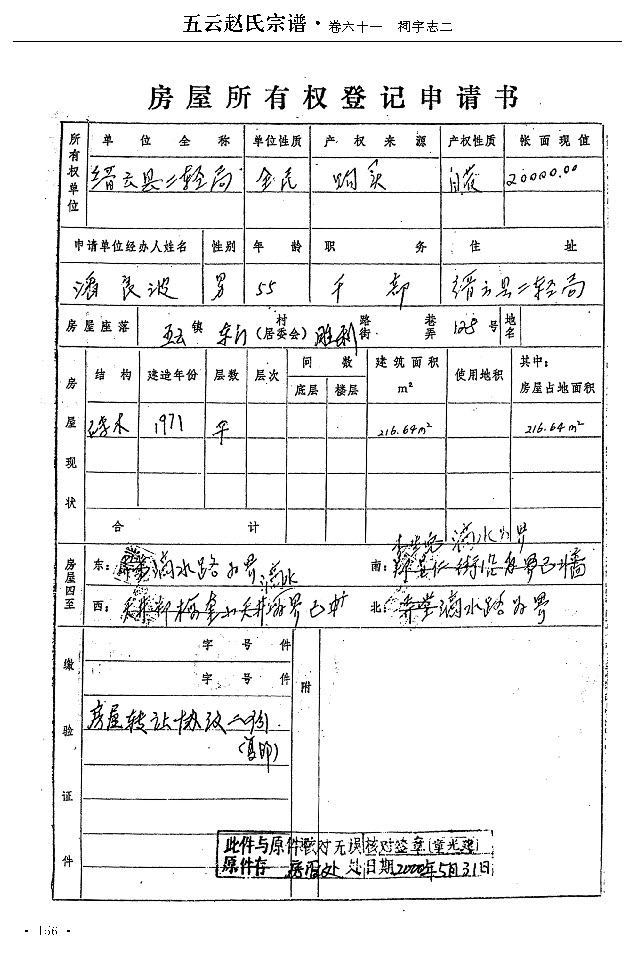 五云赵氏宗谱·卷六十一 祠宇志二
房屋所有权登记申请书
所有权单位 单位全称 单位性质 产权来源 产权性质 张面现值
缙云县二轻局 全民 购买 自管 20000.00
申请单位经办人姓名 性别 年龄 职务 住址
潘良波 男 55 干部 缙云县二轻局
房屋座落 五云镇 东门村(居委会) 胜利路街 巷弄 128号 地名
房屋现状 结构 建造年份 层数 层次 间数 底层 楼层 建筑面积m² 使用地积 其中:房屋占地面积
砖木 1971 平 216.64m² 216.64m²
合计
房屋四至 东: 滴水路为界 南: 滴水为界 己墙
西: 滴水 天井为界 北: 滴水路为界
缴验证件 字号件 附
字号件
房屋转让协议二份
(复印)
此件与原件核对无误 核对签章
原件存 房管处 处 日期2000年5月31日
·156·